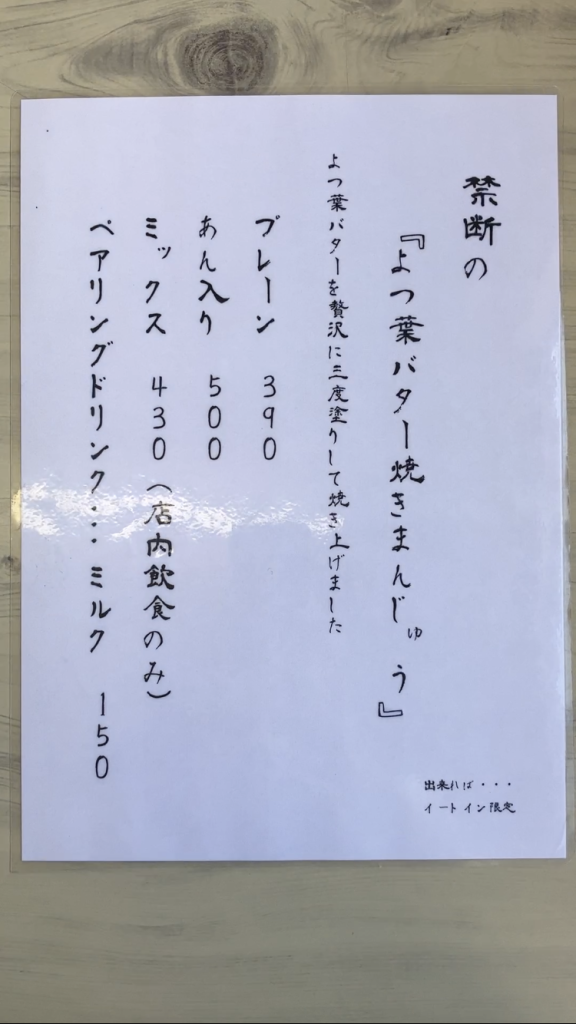 禁断の
『よつ葉バター焼きまんじゅう』
よつ葉バターを贅沢に三度塗りして焼き上げました
プレーン 390
あん入り 500
ミックス 430(店内飲食のみ)
ペアリングドリンク・・・ミルク 150
出来れば・・・
イートイン限定